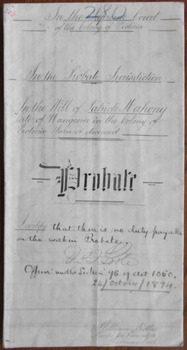 In the Supreme Court
of the Colony of Victoria
In the Probate Jurisdiction
In the Will of Patrick Mahony
late of Wangoom in the Colony of
Victoria Farmer deceased
Probate
I certify that there is no duty payable
on the within Probate
Officer under Section 98 of Act 1060.